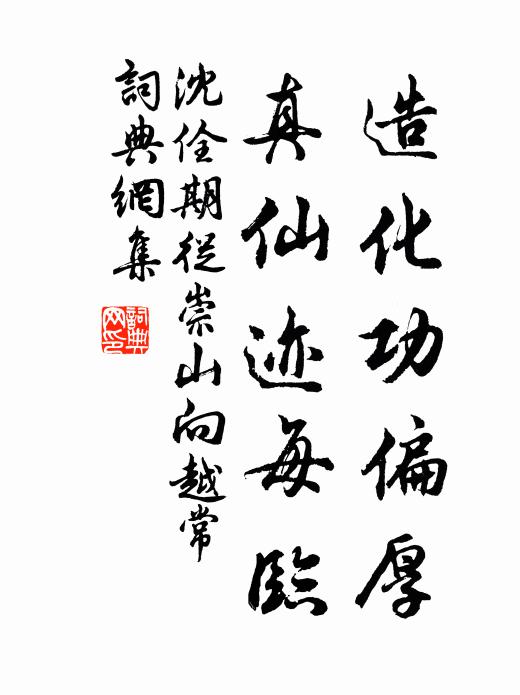 造化功偏厚
真仙迹每臨
沈佺期從崇山向越常
詞典網集
詞典網印